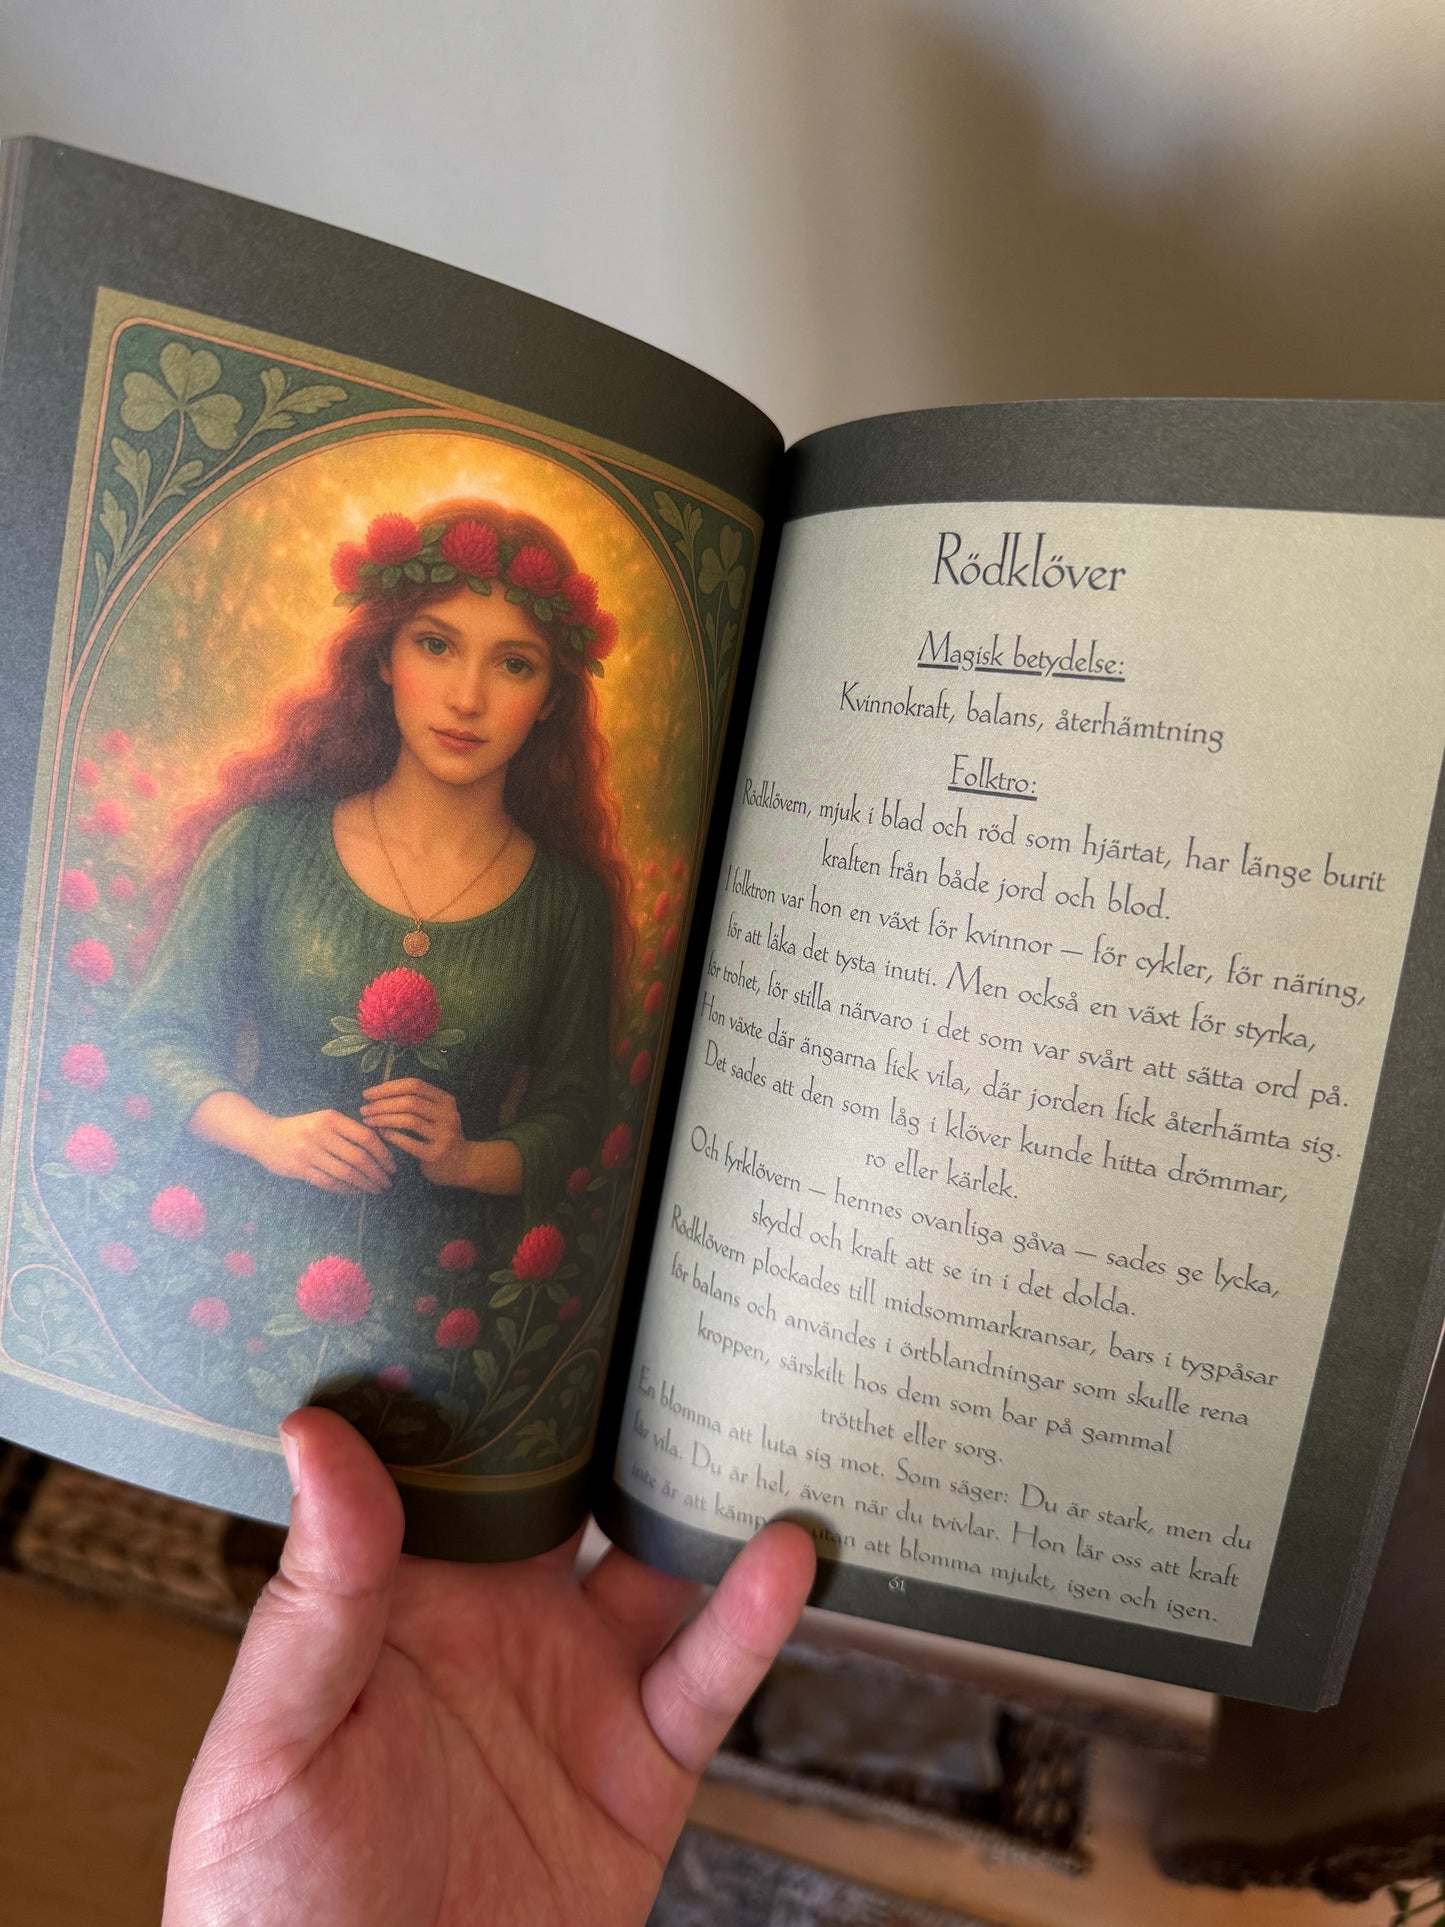 Rödklöver
Magisk betydelse:
Kvinnokraft, balans, återhämtning
Folktro:
Rödklövern, mjuk i blad och röd som hjärtat, har länge burit
kraften från både jord och blod.
I folktron var hon en växt för kvinnor – för cykler, för näring,
för att läka det tysta inuti. Men också en växt för styrka,
för trohet, för stilla närvaro i det som var svårt att sätta ord på.
Hon växte där ängarna fick vila, där jorden fick återhämta sig.
Det sades att den som låg i klöver kunde hitta drömmar,
ro eller kärlek.
Och fyrklövern – hennes ovanliga gåva – sades ge lycka,
skydd och kraft att se in i det dolda.
Rödklövern plockades till midsommarkransar, bars i tygpåsar
för balans och användes i örtblandningar som skulle rena
kroppen, särskilt hos dem som bar på gammal
trötthet eller sorg.
En blomma att luta sig mot. Som säger: Du är stark, men du
får vila. Du är hel, även när du tvivlar. Hon lär oss att kraft
inte är att utan att blomma mjukt, igen och igen.
61